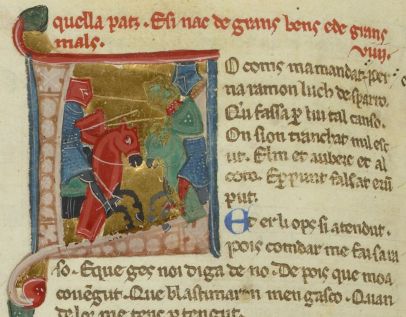 quella patz. Esi nac de grans bens ede grans
mals.
viiij.
O coms ma mandat per
na ramon luch de sparro.
Qu fassa p lui tal canso.
On sion trancbat mil esc
ut. Elm et auberc et al
coto. Epponit falsat erũ
put.
Et er li ops si atendut.
pois comdar me fai sa ra
so. Eque ges noi diga de no. De pois que moa
covẽgut. Que blastimaran men gasco. Quan
de lor me tenc p tengut.